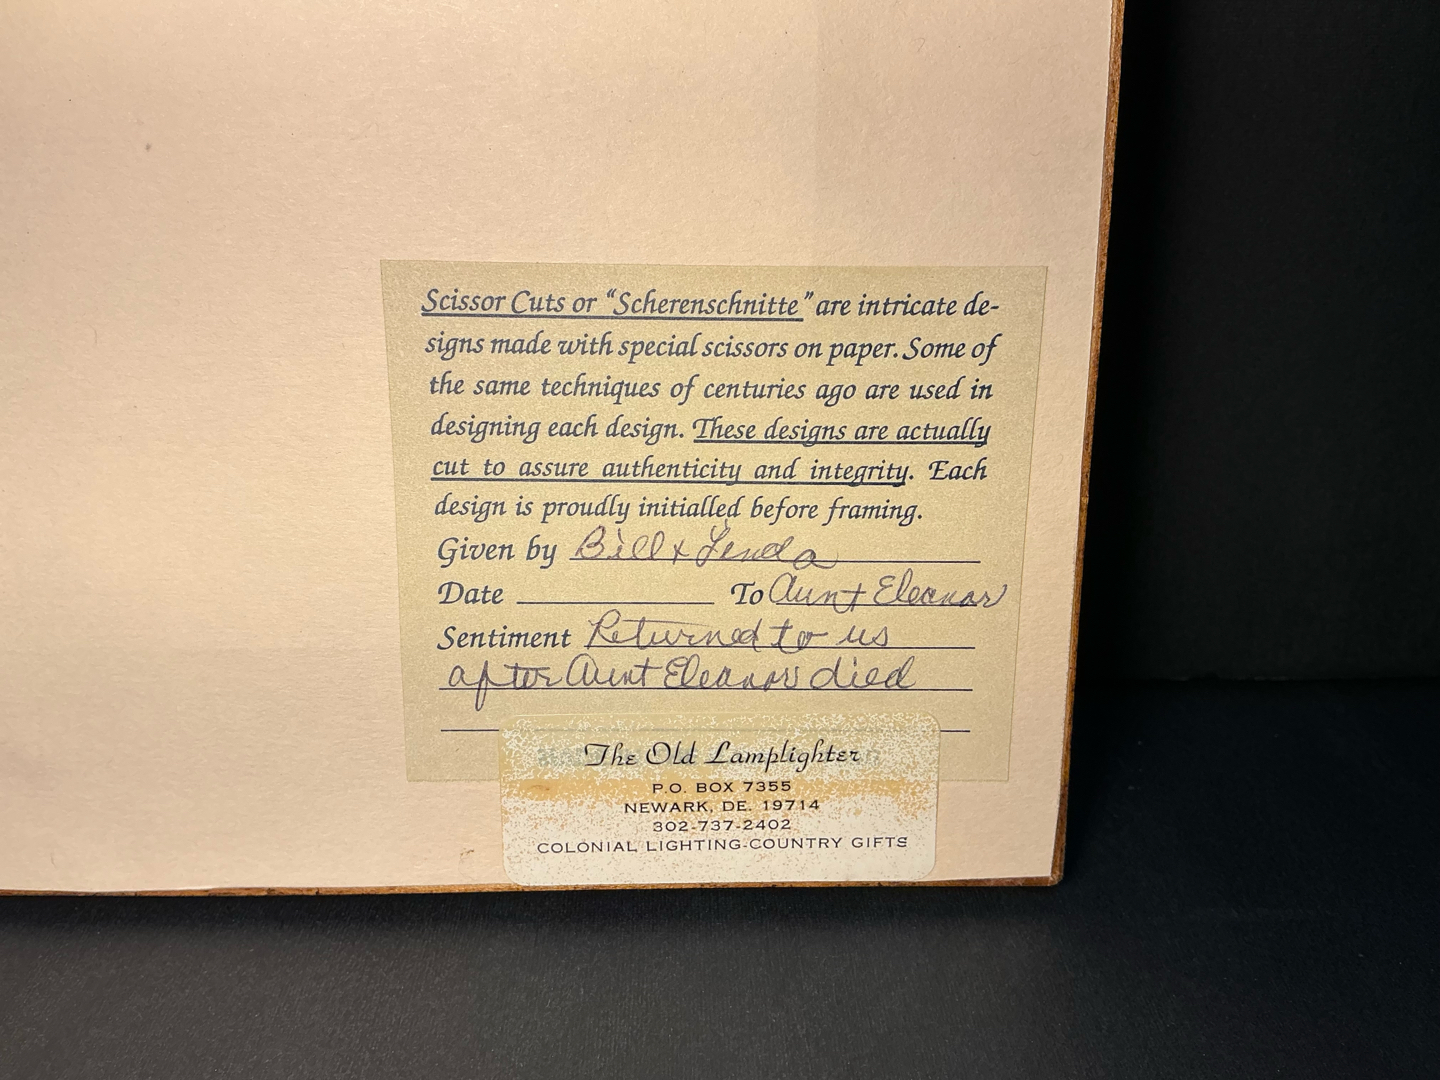 Scissor Cuts or “Scherenschnitte” are intricate de-
signs made with special scissors on paper. Some of
the same techniques of centuries ago are used in
designing each design. These designs are actually
cut to assure authenticity and integrity. Each
design is proudly initialled before framing.
Given by Bill & Linda
Date To Aunt Eleanor
Sentiment Returned to us
after Aunt Eleanor died
The Old Lamplighter
P.O. BOX 7355
NEWARK, DE. 19714
302-737-2402
COLONIAL LIGHTING-COUNTRY GIFTS